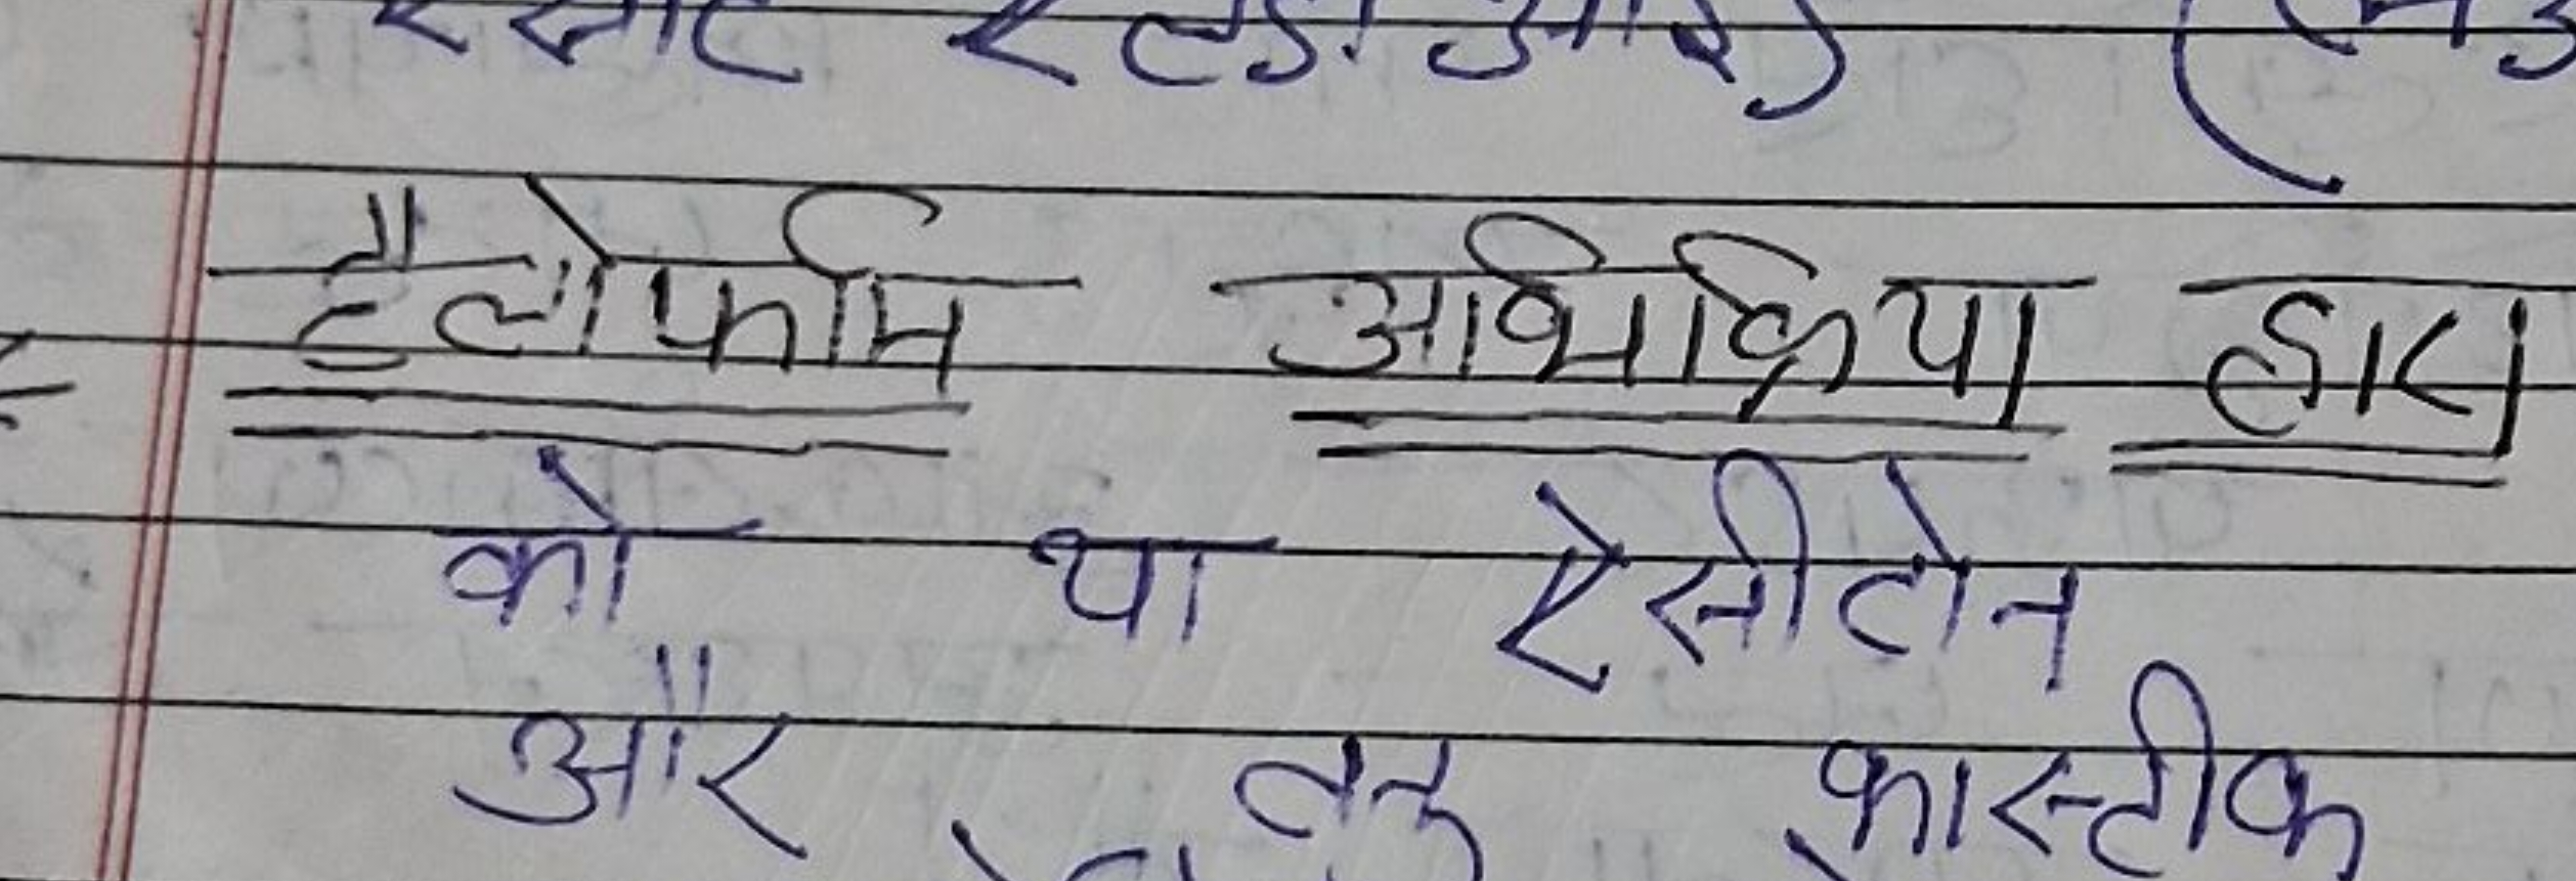 हैलोफॉर्म अभिक्रिया द्वारा
को या ऐसीटोन
और तनु कास्टीक